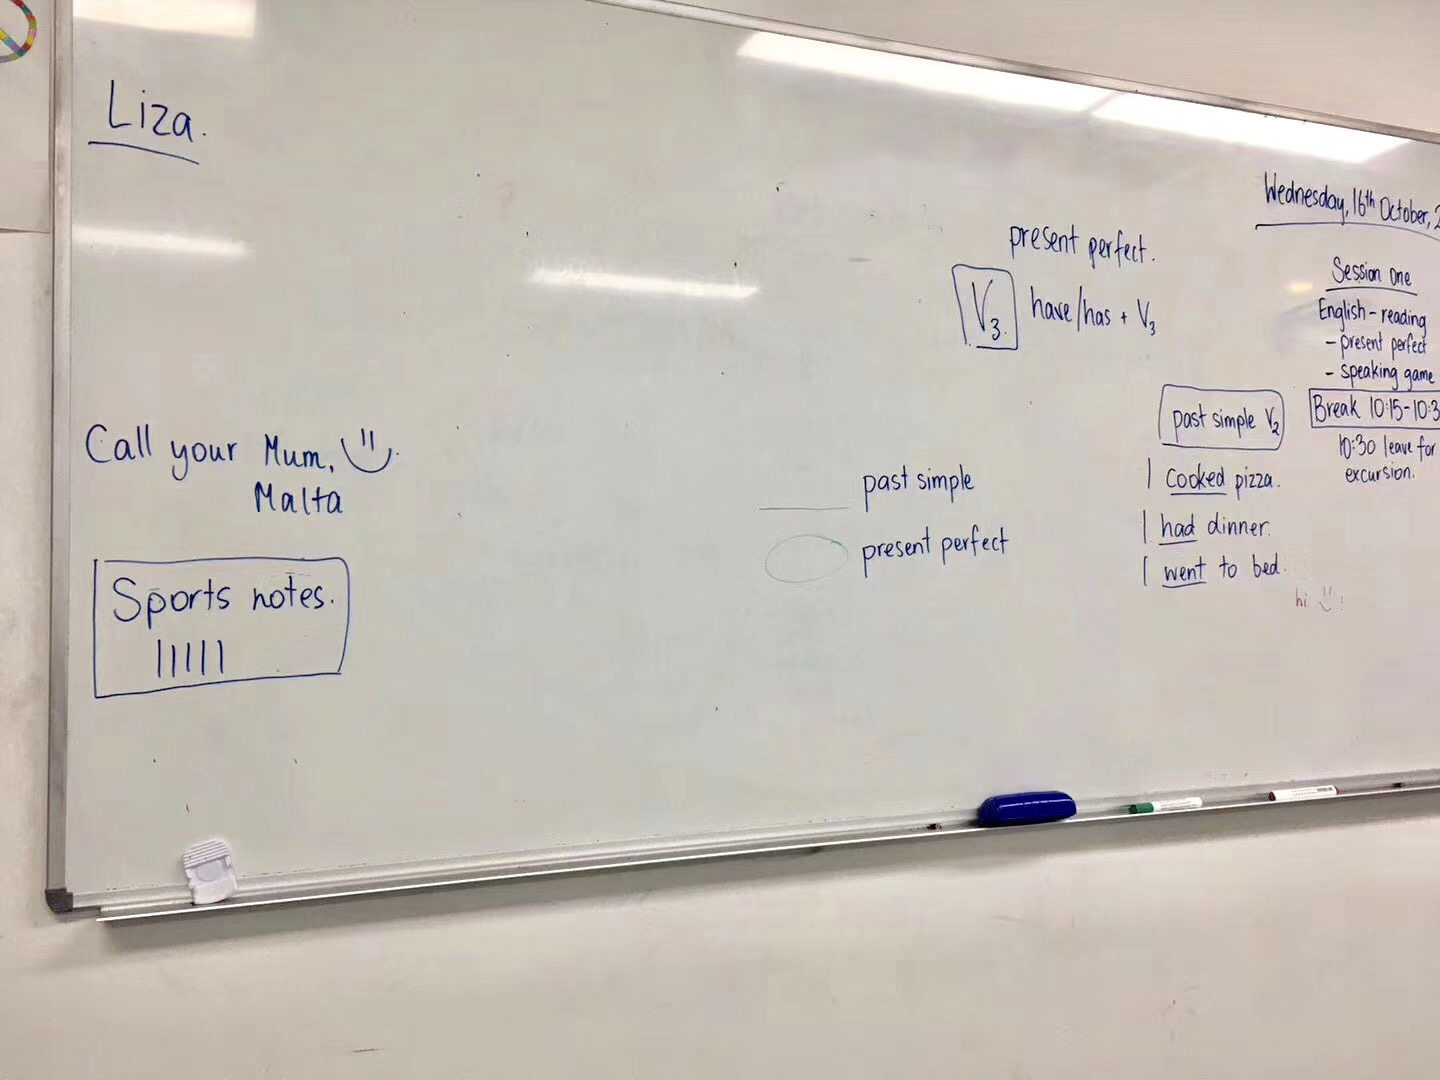 Liza.
Call your Mum,
Malta
Sports notes.
present perfect.
V3
have/has + V3
past simple
present perfect
past simple V2
I cooked pizza.
I had dinner.
I went to bed.
hi
Wednesday, 16th October,
Session One
English - reading
- present perfect
- speaking game
Break 10:15-10:3
10:30 leave for
excursion.